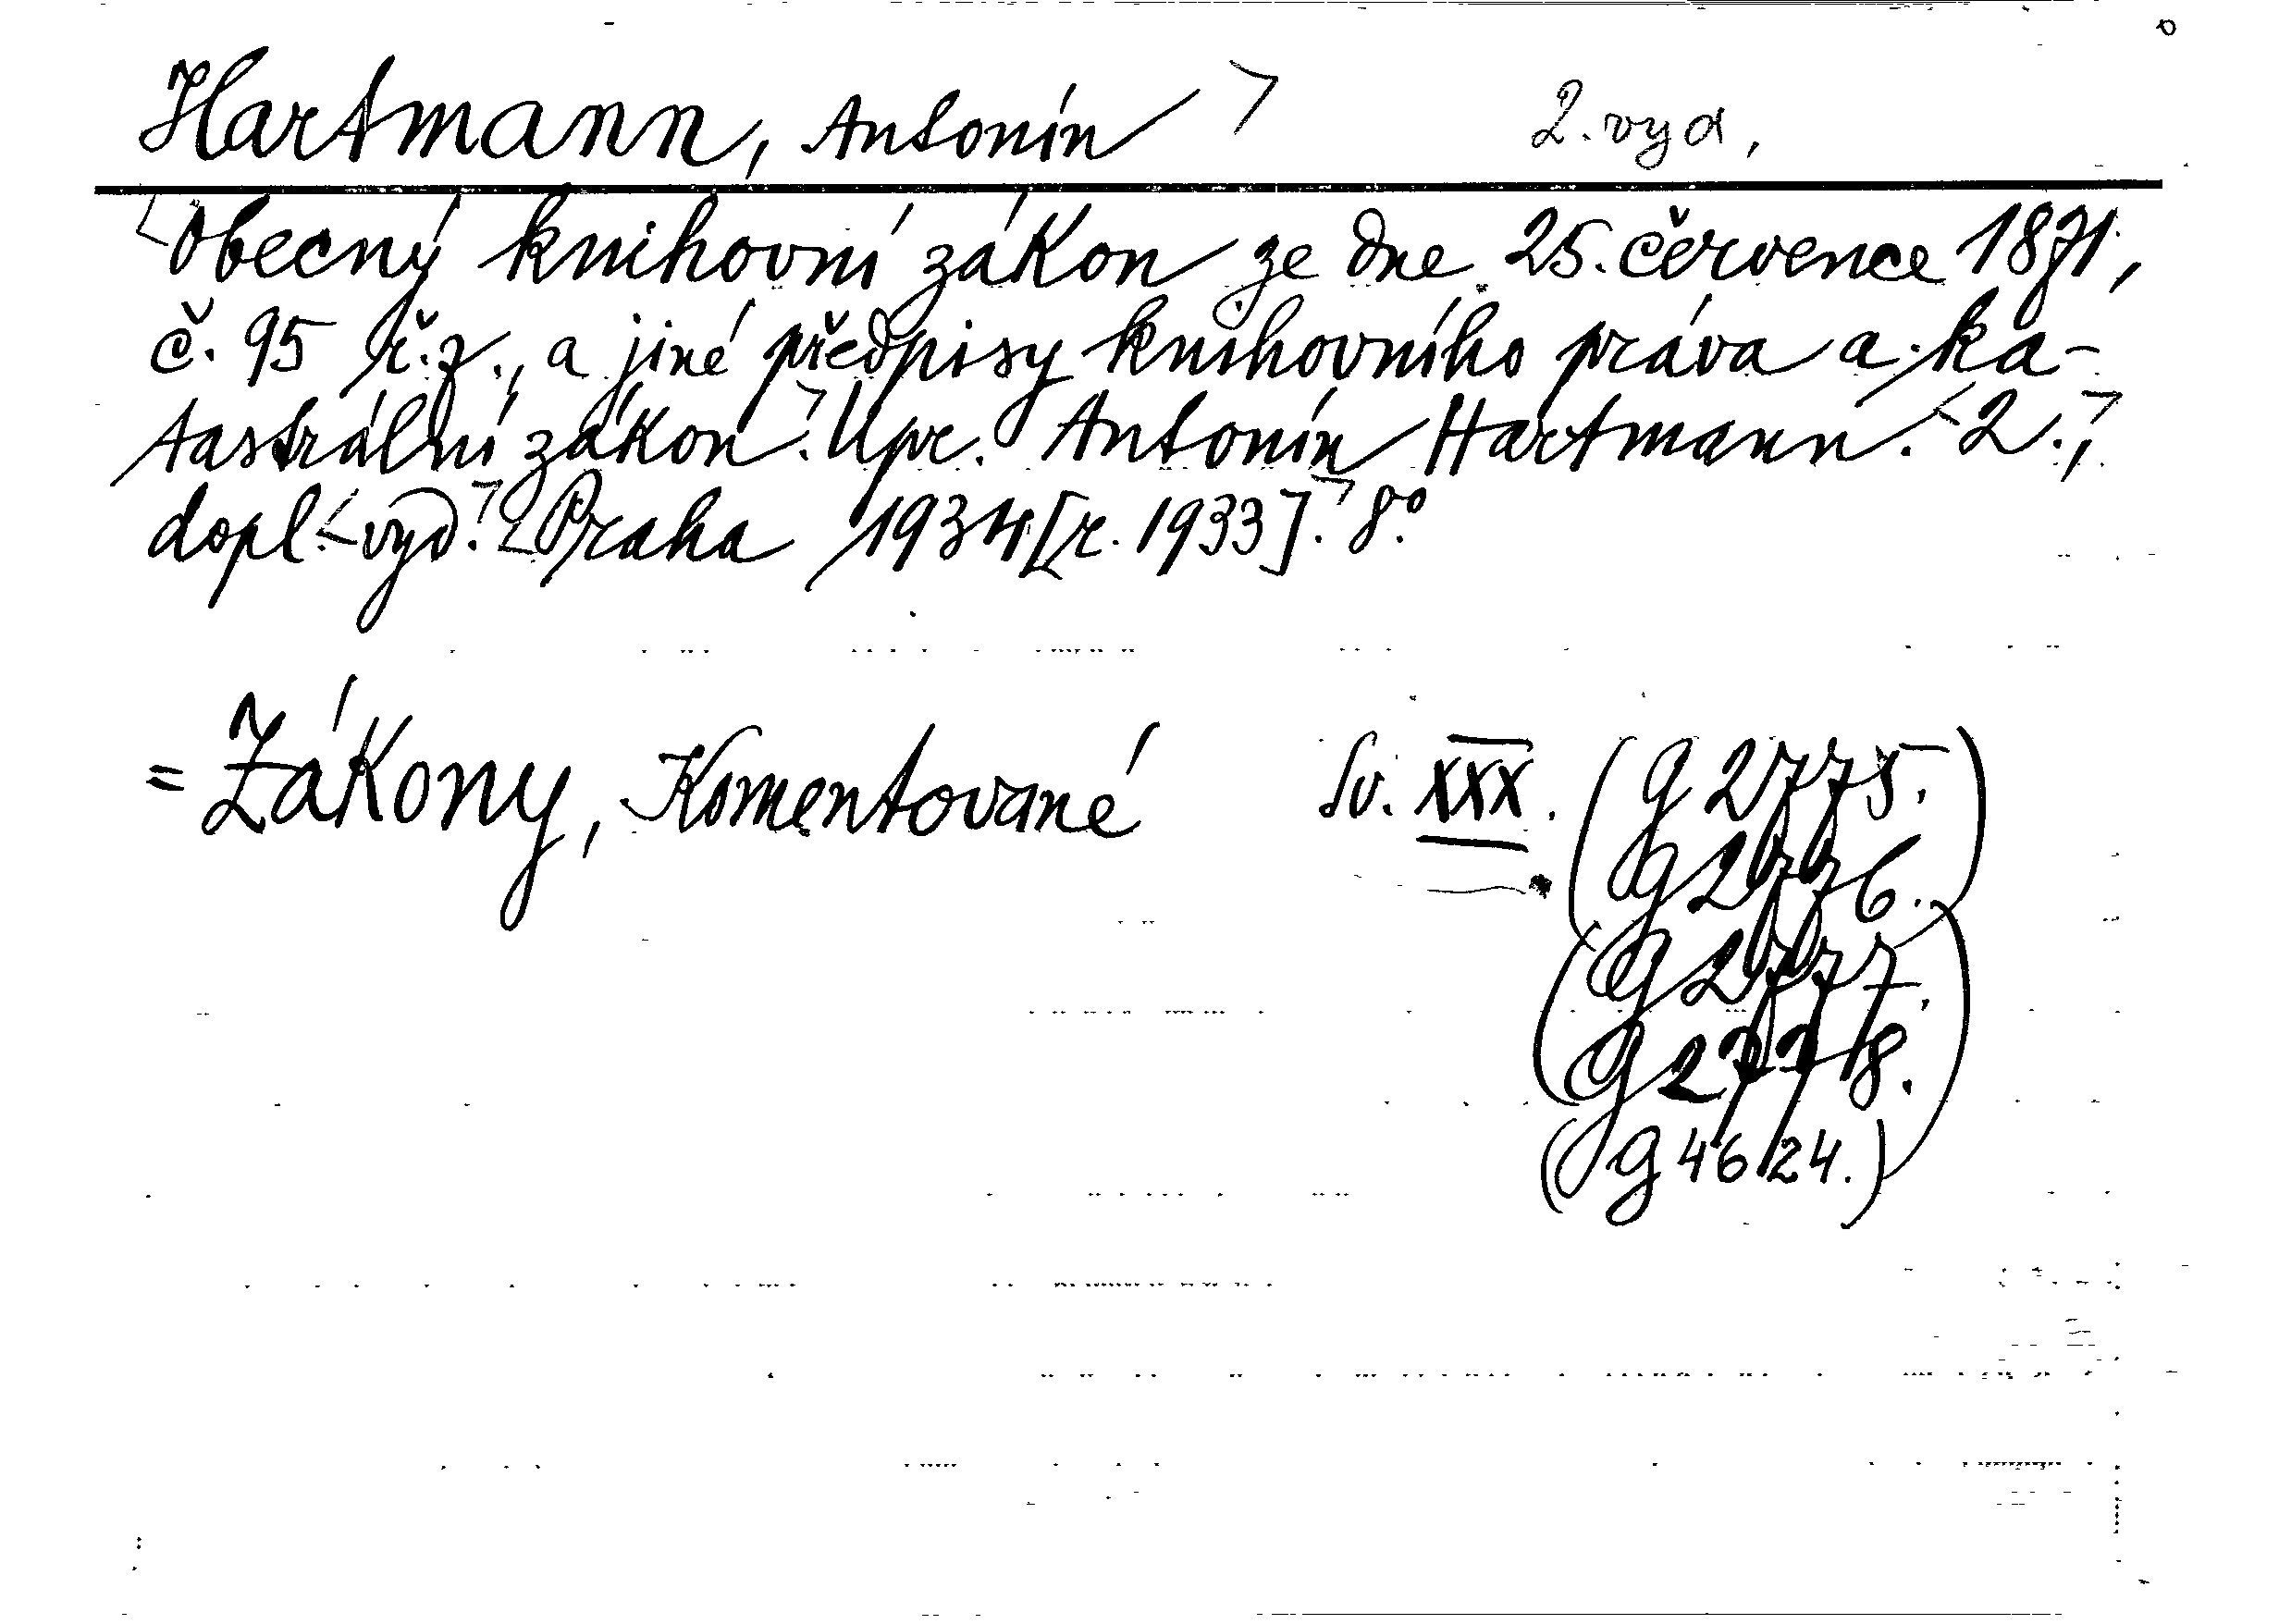 Hartmann, Antonín 2. vyd,
Obecný knihovní zákon ze dne 25. července 1871,
č. 95 ř. z., a jiné předpisy knihovního práva a ka-
tastrální zákon. Upr. Antonín Hartmann. 2.,
dopl. vyd. Praha 1934 [r. 1933]. 8°.
= Zákony, Komentované Sv. XXX. (g 2775.
g 2776.)
(g 2777.
g 2778.)
(g 4624.)